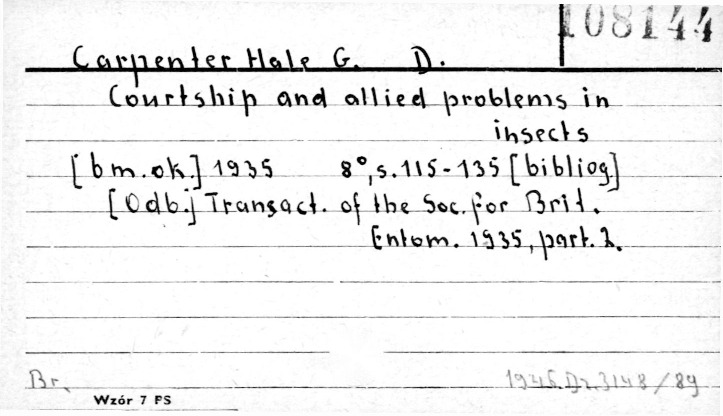 108144
Carpenter Hale G. D.
Courtship and allied problems in
insects
[bm.ok.] 1935 8°, s. 115-135 [bibliog]
[Odb.] Transact. of the Soc. for Brit.
Entom. 1935, part. 2.
Br. 1946.Dr.3148/89
Wzór 7 FS